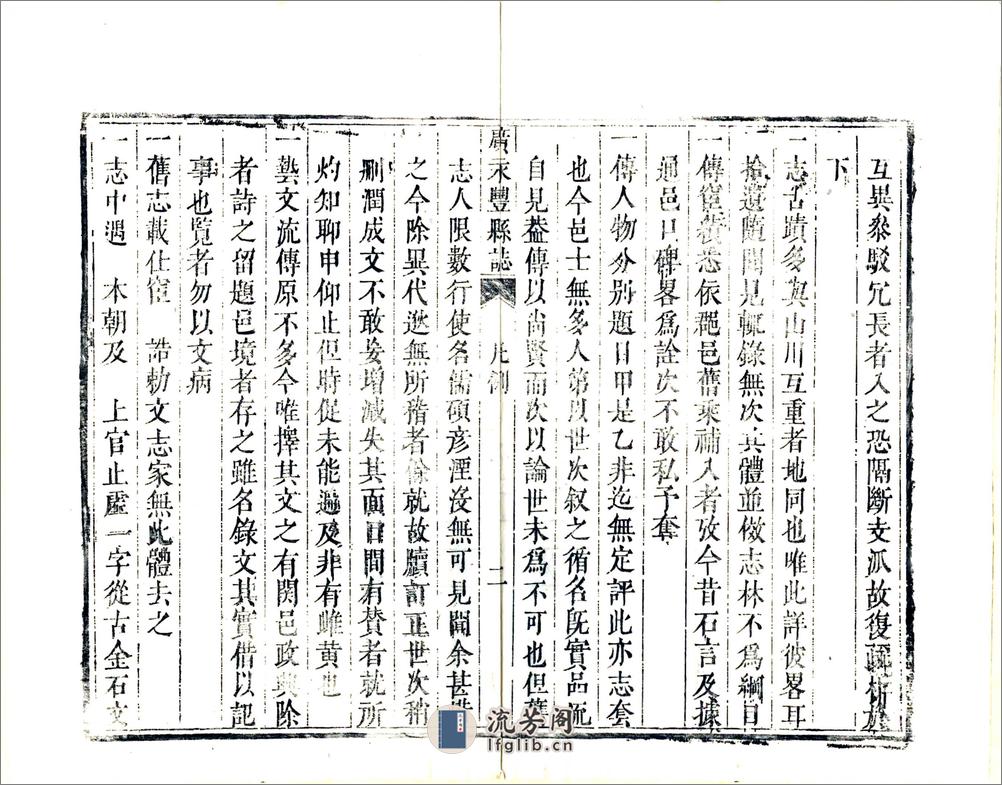 互異叅駁冗長者入之恐隔斷支派故復疏析於
下
一志古蹟多與山川互重者地同也唯此詳彼畧耳
拾遺隨聞見輒錄無次其體並倣志林不爲綱目
一傳宦蹟悉依郡邑舊乘補入者攷今昔石言及據
通邑口碑畧爲詮次不敢私予奪
一傳人物分別題目甲是乙非迄無定評此亦志套
也今邑士無多人第以世次叙之循名旣實品流
自見葢傳以尚賢而次以論世未爲不可也但舊
廣永豐縣誌 凡例 二
志人限數行使名儒碩彦湮沒無可見聞余甚惜
之今除異代邈無所稽者餘就故牘訂正世次稍
刪潤成文不敢妄增减失其面目間有賛者就所
灼知聊申仰止但時促未能遍及非有雌黄也
一藝文流傳原不多今唯擇其文之有関邑政與除
者詩之留題邑境者存之雖名錄文其實借以記
事也覽者勿以文病
一舊志載仕宦 誥勅文志家無此體去之
一志中遇 本朝及 上官止虛一字從古金石文
流芳阁
lfglib.cn